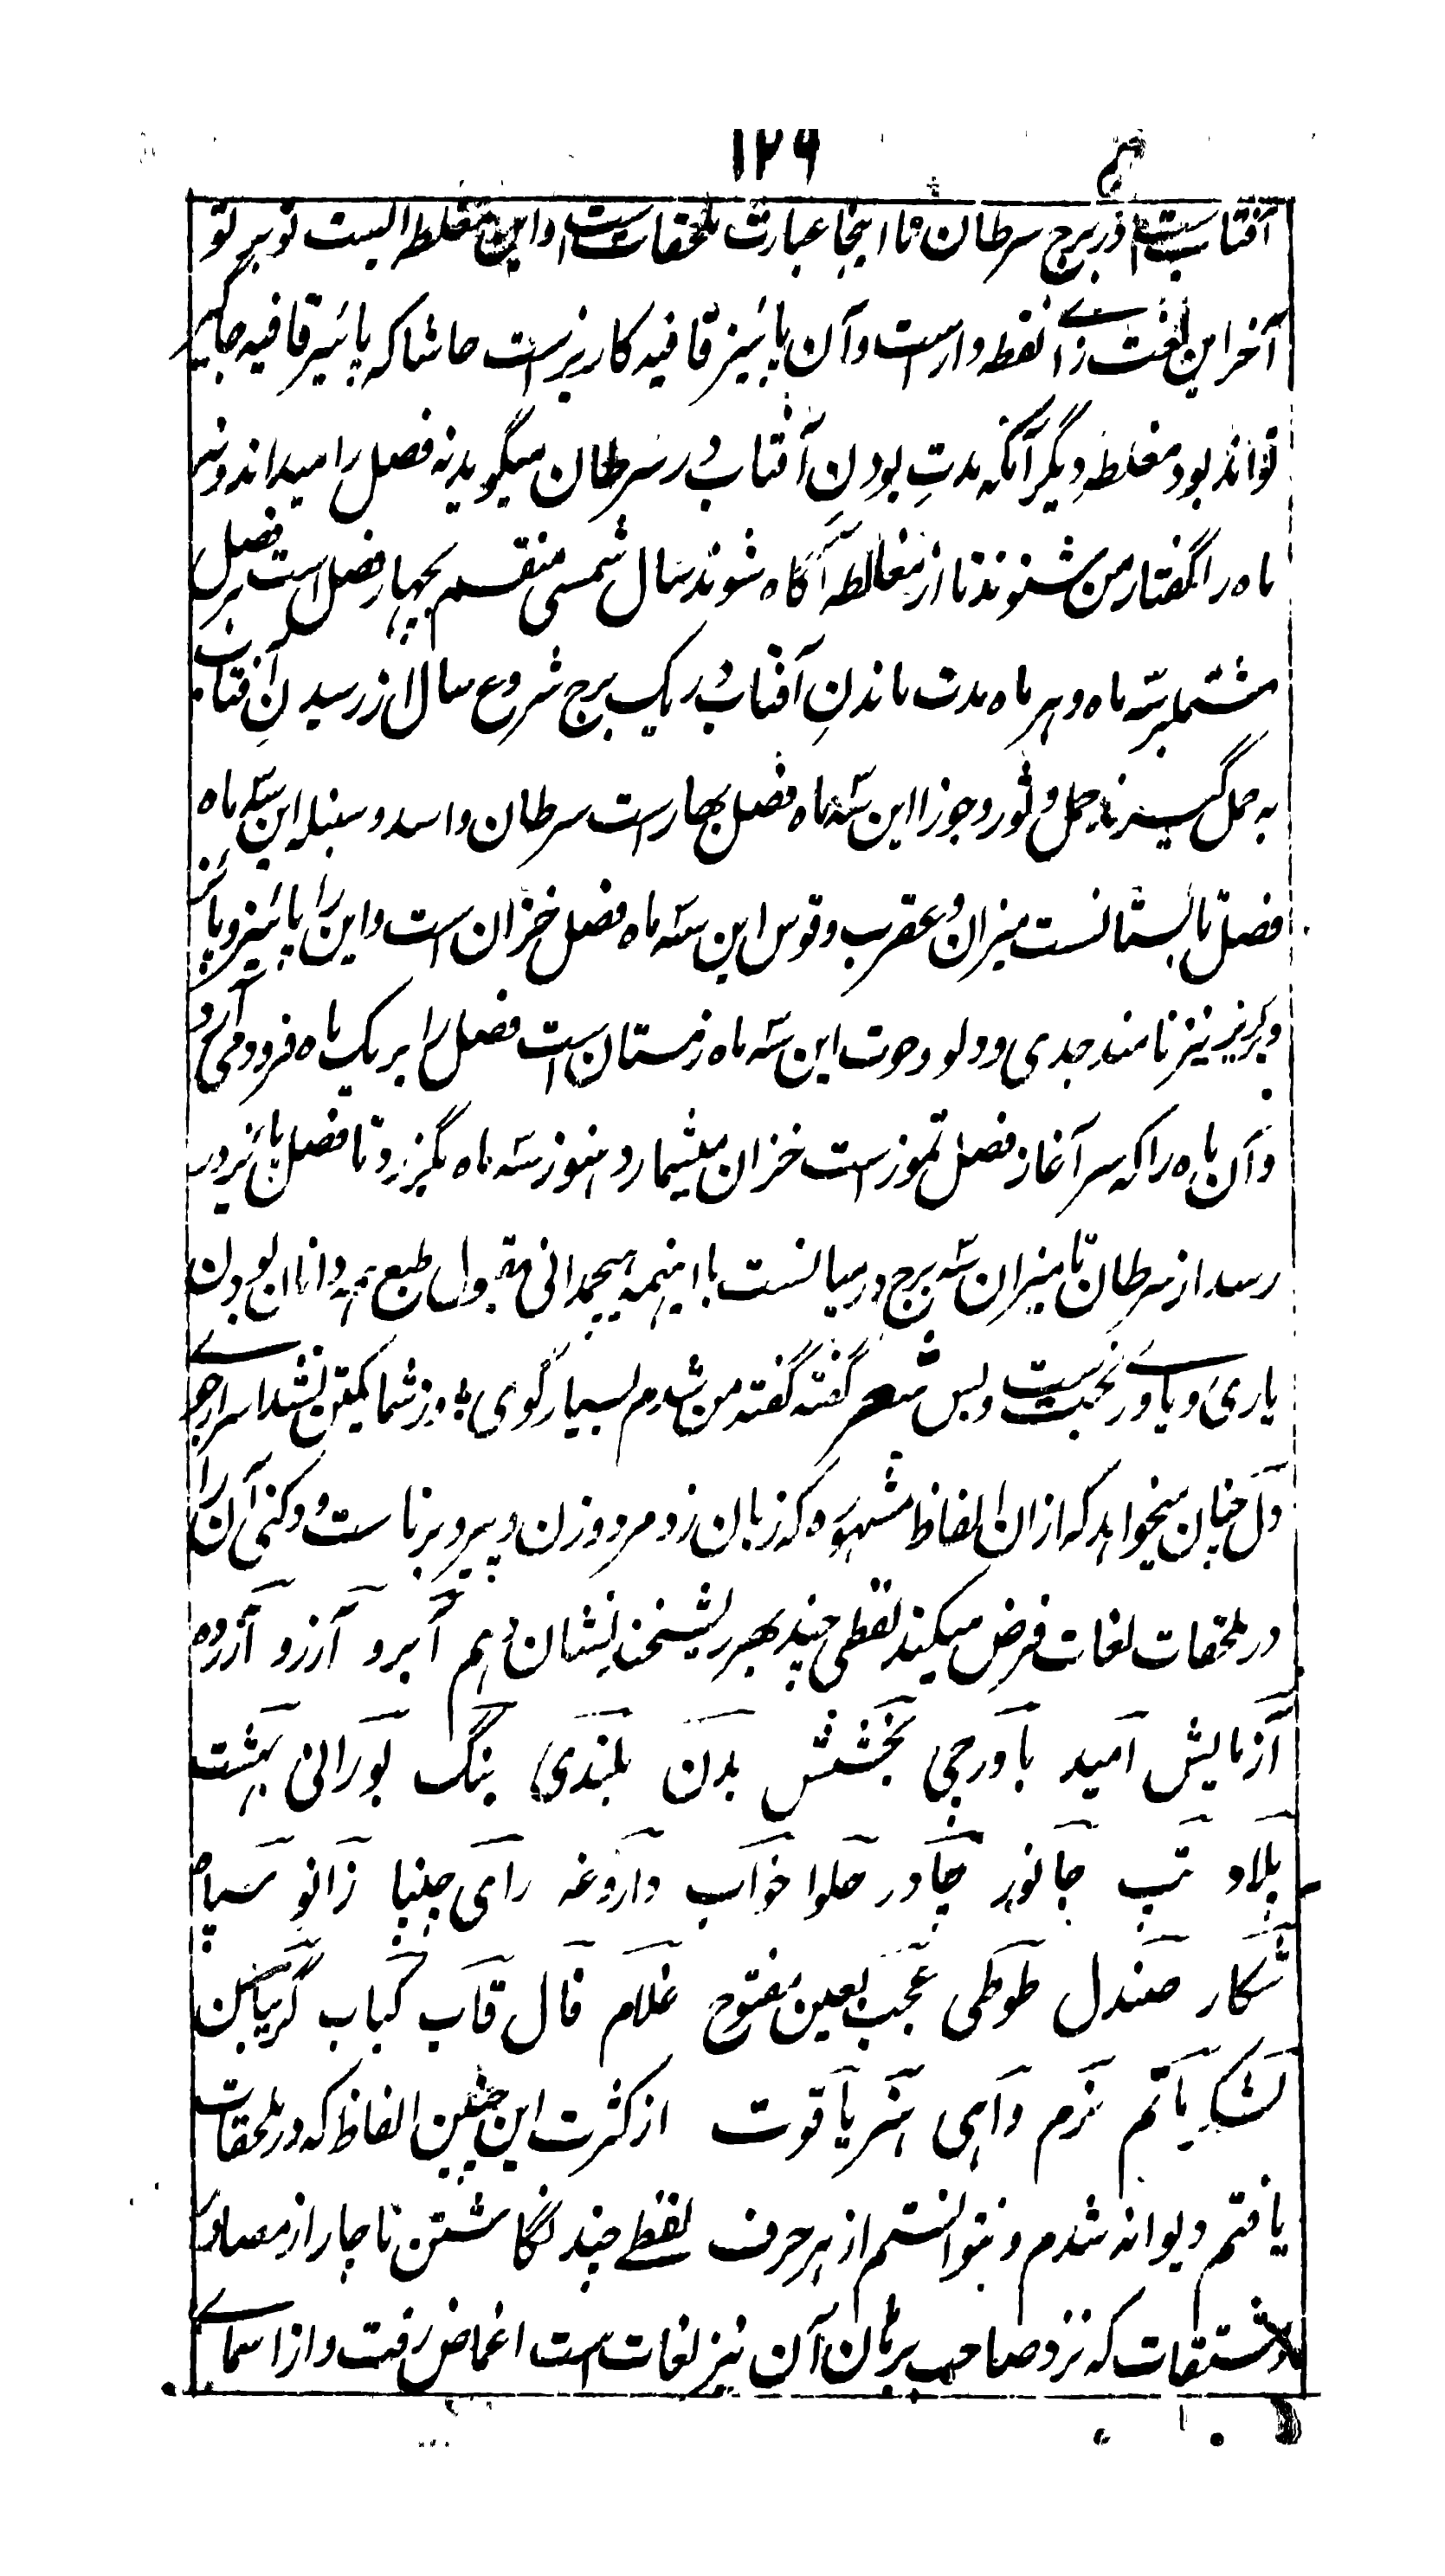 ۱۲۶
آفتاب ست در برج سرطان تا اینجا عبارت ملحقات ست و این مغلطه ایست تو بر تو
آخر این لغت زاے نقطه دارست و آن پائیز قافیه کاریزست حاشا که پائیر قافیه جاگیر
تواند بود مغلطه دیگر آنکه مدتِ بودنِ آفتاب در سرطان میگوید نه فصل را میداند و نه
ماه را گفتار من شنوند تا از مغالطه آگاه شوند سال شمسی منقسم بچهار فصل است هر فصل
مشتمل بر سه ماه و هر ماه مدت ماندنِ آفتاب در یک برج شروع سال از رسیدنِ آفتاب
به حمل گیرند حمل و ثور و جوزا این سه ماه فصل بهارست سرطان و اسد و سنبله این سه ماه
فصل تابستانست میزان و عقرب و قوس این سه ماه فصل خزان است و این را پائیز و پائز
و برگریز نیز نامند جدی و دلو و حوت این سه ماه زمستان ست فصل را بر یک ماه فرود می آرد
و آن ماه را که سر آغاز فصل تموز ست خزان میشمارد هنوز سه ماه بگیزرد تا فصل پائیز در
رسد از سرطان تا میزان سه برج در میانست با اینهمه هیچمدانی مقبول طبع همه دانا ان بودن
یاری و یاورے بخت ست و بس شعر گفته گفته من شدم بسیار گوی ؛ وز شما یکتن نشد اسرار جوے
دل چنان میخواهد که از ان الفاظ مشهوره که زبان زد مرد و زن و پیر و برناست و دکنی آن را
در ملحقات لغات فرض میکند لفظی چند بهر ریشخند نشان دهم آبرو آرزو آزرده
آزمایش امید باورچی بخشش بدن بلندی بنگ بورانی بهشت
پلاو تپ جانور چادر حلوا خواب داروغه رای چنپا زانو سپاه
شکار صندل طوطی عجب بعین مفتوح غلام فال قاب کباب گریبان
لشکر ماتم نرم واهی هنر یاقوت از کثرت این چنین الفاظ که در ملحقات
یافتم دیوانه شدم و نتوانستم از هر حرف لفظے چند نگاشتن ناچار از مصادر
و مشتقات که نزد صاحب برهان آن نیز لغات ست اغماض رفت و از اسماے